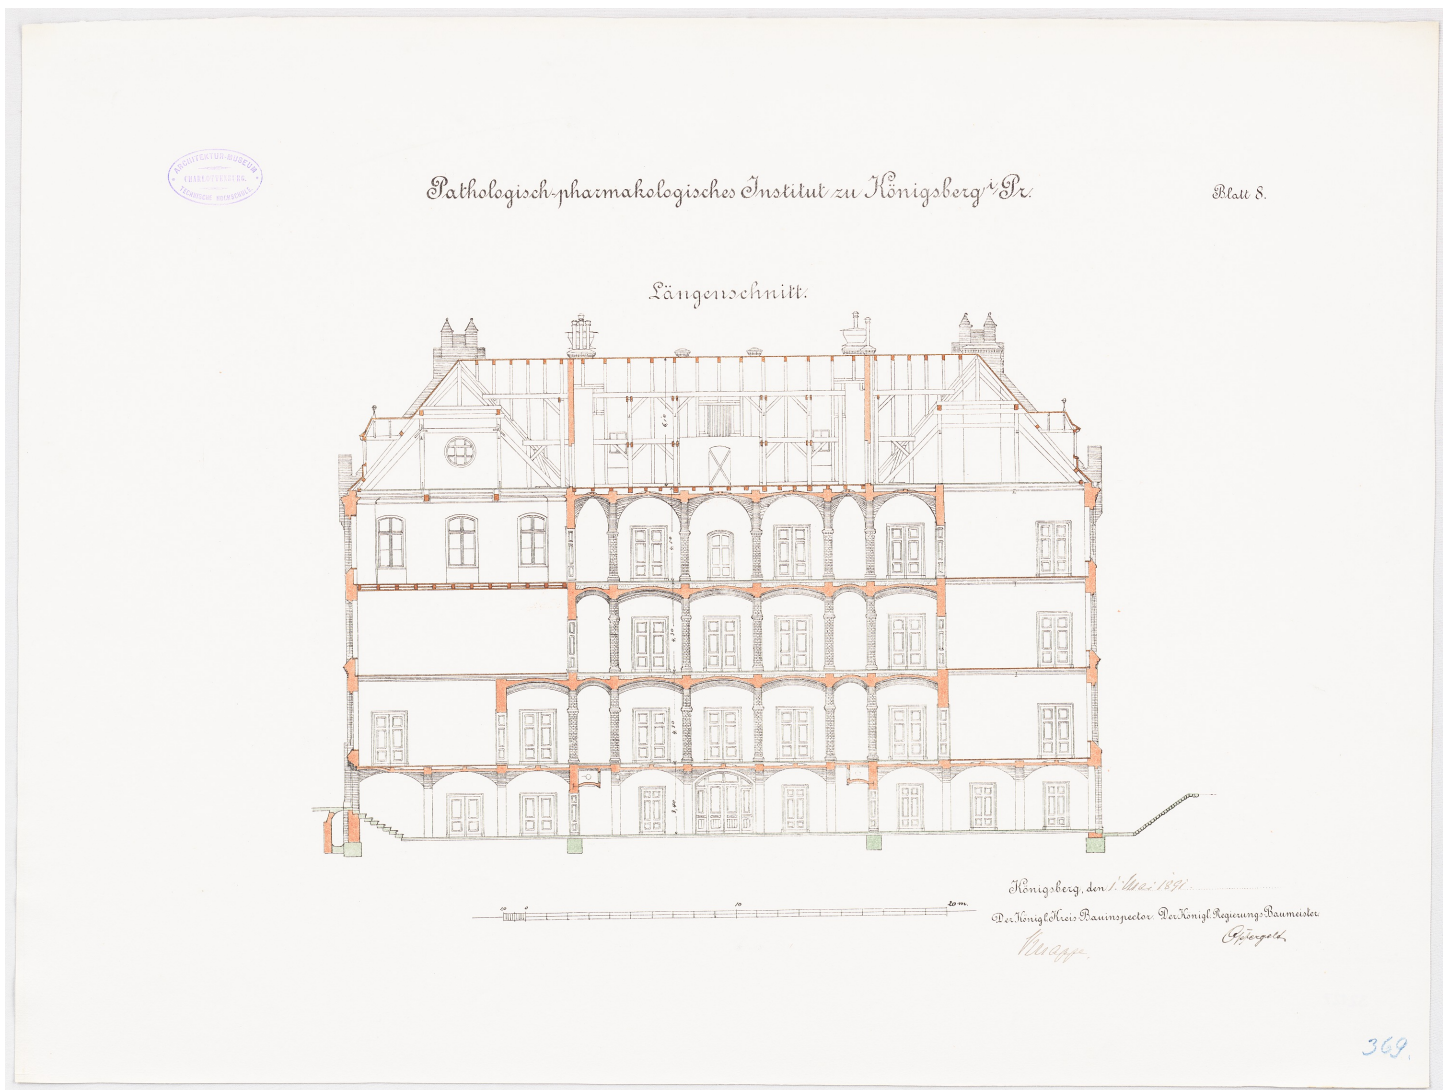 ARCHITEKTUR-MUSEUM
CHARLOTTENBURG.
TECHNISCHE HOCHSCHULE
Pathologisch-pharmakologisches Institut zu Königsberg i/Pr.
Blatt 8.
Längenschnitt.
Königsberg, den 1. Mai 1891.
10 0 10 20 m.
Der Königl. Kreis-Bauinspector. Der Königl. Regierungs-Baumeister
Knappe.
369.